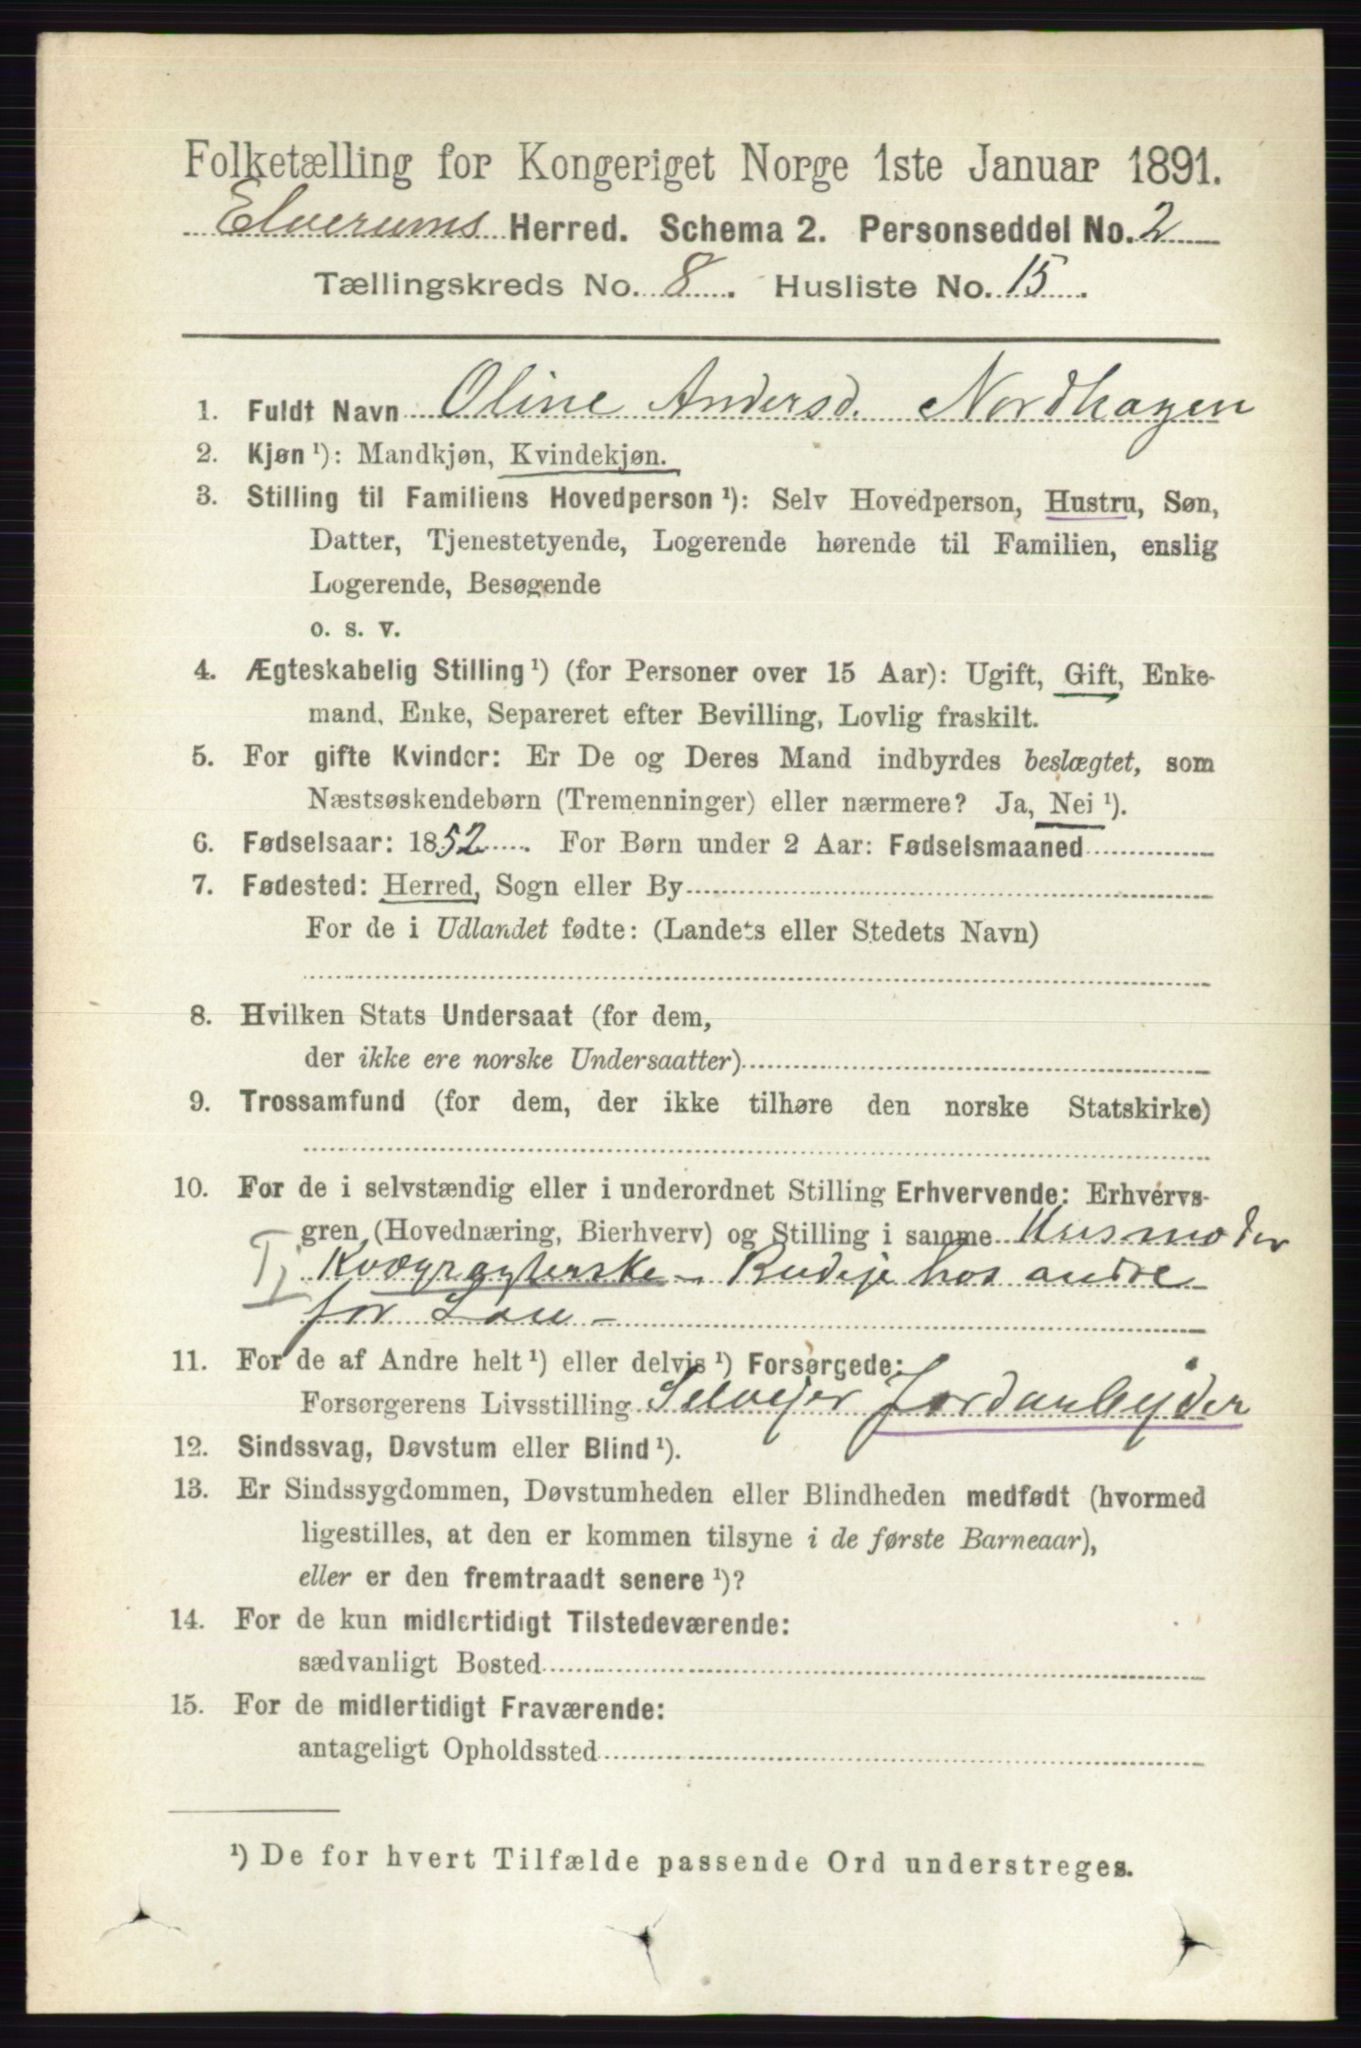 Folketælling for Kongeriget Norge 1ste Januar 1891.
Elverums Herred. Schema 2. Personseddel No. 2
Tællingskreds No. 8. Husliste No. 15.
1. Fuldt Navn Oline Andersd. Nordhagen
2. Kjøn ¹): Mandkjøn, Kvindekjøn.
3. Stilling til Familiens Hovedperson ¹): Selv Hovedperson, Hustru, Søn,
Datter, Tjenestetyende, Logerende hørende til Familien, enslig
Logerende, Besøgende
o. s. v.
4. Ægteskabelig Stilling ¹) (for Personer over 15 Aar): Ugift, Gift, Enke-
mand, Enke, Separeret efter Bevilling, Lovlig fraskilt.
5. For gifte Kvinder: Er De og Deres Mand indbyrdes beslægtet, som
Næstsøskendebørn (Tremenninger) eller nærmere? Ja, Nei ¹).
6. Fødselsaar: 1852. For Børn under 2 Aar: Fødselsmaaned
7. Fødested: Herred, Sogn eller By
For de i Udlandet fødte: (Landets eller Stedets Navn)
8. Hvilken Stats Undersaat (for dem,
der ikke ere norske Undersaatter)
9. Trossamfund (for dem, der ikke tilhøre den norske Statskirke)
10. For de i selvstændig eller i underordnet Stilling Erhvervende: Erhvervs-
gren (Hovednæring, Bierhverv) og Stilling i samme Husmoder
Tj Kvægrøgterske - Budeje hos andre
for Løn -
11. For de af Andre helt ¹) eller delvis ¹) Forsørgede:
Forsørgerens Livsstilling Selvejer Jordarbejder
12. Sindssvag, Døvstum eller Blind ¹).
13. Er Sindssygdommen, Døvstumheden eller Blindheden medfødt (hvormed
ligestilles, at den er kommen tilsyne i de første Barneaar),
eller er den fremtraadt senere ¹)?
14. For de kun midlertidigt Tilstedeværende:
sædvanligt Bosted
15. For de midlertidigt Fraværende:
antageligt Opholdssted
¹) De for hvert Tilfælde passende Ord understreges.